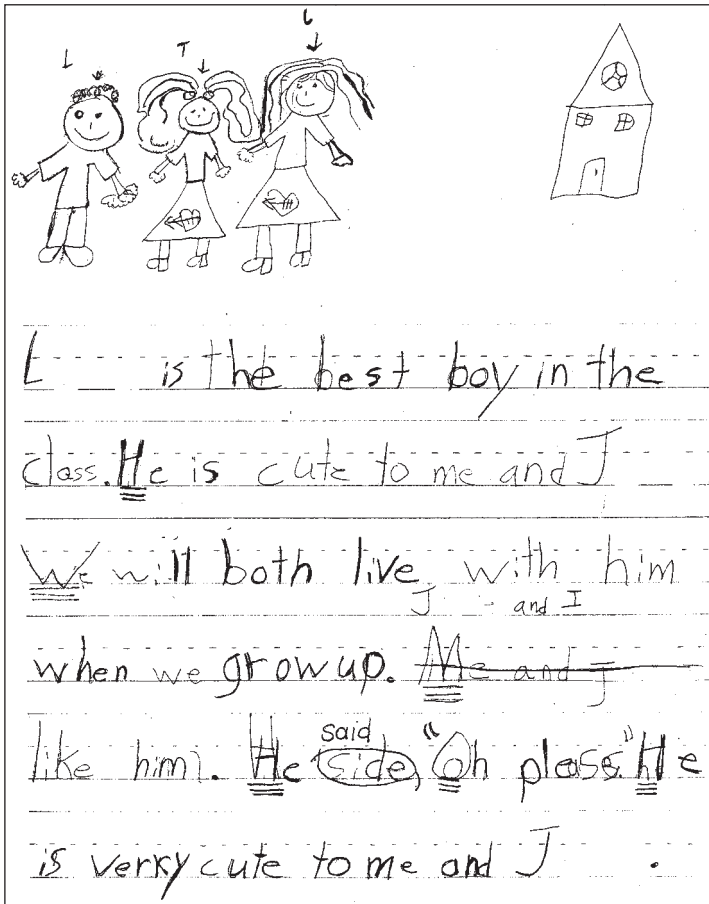 L T J
L is the best boy in the
class. He is cute to me and J
We will both live with him
J and I
when we grow up. Me and J
said
like him. He side, "Oh please." He
is verky cute to me and J .